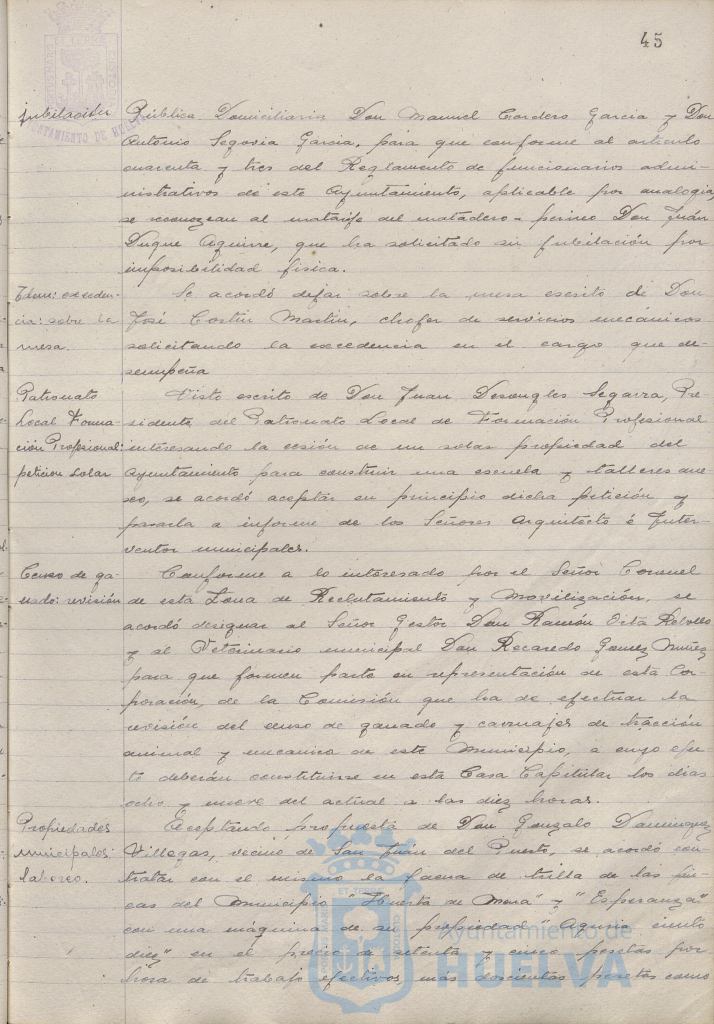 45
jubilación
Pública Domiciliaria Don Manuel Cordero Garcia y Don
Antonio Segovia Garcia, para que conforme al articulo
cuarenta y tres del Reglamento de funcionarios admi-
nistrativos de este Ayuntamiento, aplicable por analogia,
se reconozcan al matarife del matadero - perineo Don Juán
Duque Aguirre, que ha solicitado su jubilación por
imposibilidad fisica.
Idem: exceden-
cia: sobre la
mesa.
Se acordó dejar sobre la mesa escrito de Don
José Martin, chofer de servicios mecánicos
solicitando la excedencia en el cargo que de-
sempeña
Patronato
Local Forma-
ción Profesional:
peticion solar
Visto escrito de Don Juan Desongles Segarra, Pre-
sidente del Patronato Local de Formación Profesional
interesando la cesión de un solar propiedad del
Ayuntamiento para construir una escuela y talleres ane-
xo, se acordó aceptar en principio dicha petición y
pasarla a informe de los Señores Arquitecto é Inter-
ventor municipales.
Censo de ga-
nado: revisión
Conforme a lo interesado por el Señor Coronel
de esta Zona de Reclutamiento y Movilización, se
acordó designar al Señor Gestor Don Ramón Ortá Rebollo
y al Veterinario municipal Don Recaredo Gomez Nuñez
para que formen parte en representación de esta Cor-
poración, de la Comisión que ha de efectuar la
revisión del censo de ganado y carruajes de tracción
animal y mecanica de este Municipio, a cuyo efec-
to deberán constituirse en esta Casa Capitular los dias
ocho y nueve del actual a las diez horas.
Propiedades
municipales:
laboreo.
Aceptando propuesta de Don Gonzalo Dominguez
Villegas, vecino de San Juán del Puerto, se acordó con-
tratar con el mismo la faena de trilla de las fin-
cas del Municipio "Huerta de Mena" y "Esperanza"
con una máquina de su propiedad
diez" en el precio de setenta y cinco pesetas por
hora de trabajo efectivo, más doscientas pesetas como
AYUNTAMIENTO DE HUELVA
Ayuntamiento de
HUELVA